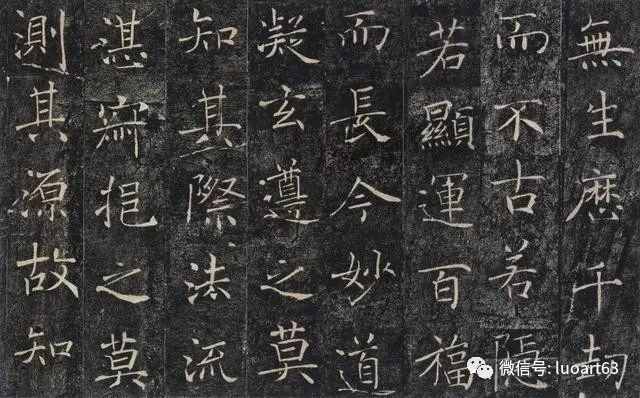 無生歷千劫
而不古若隱
若顯運百福
而長今妙道
凝玄遵之莫
知其際法流
湛寂挹之莫
測其源故知
微信号: luoart63